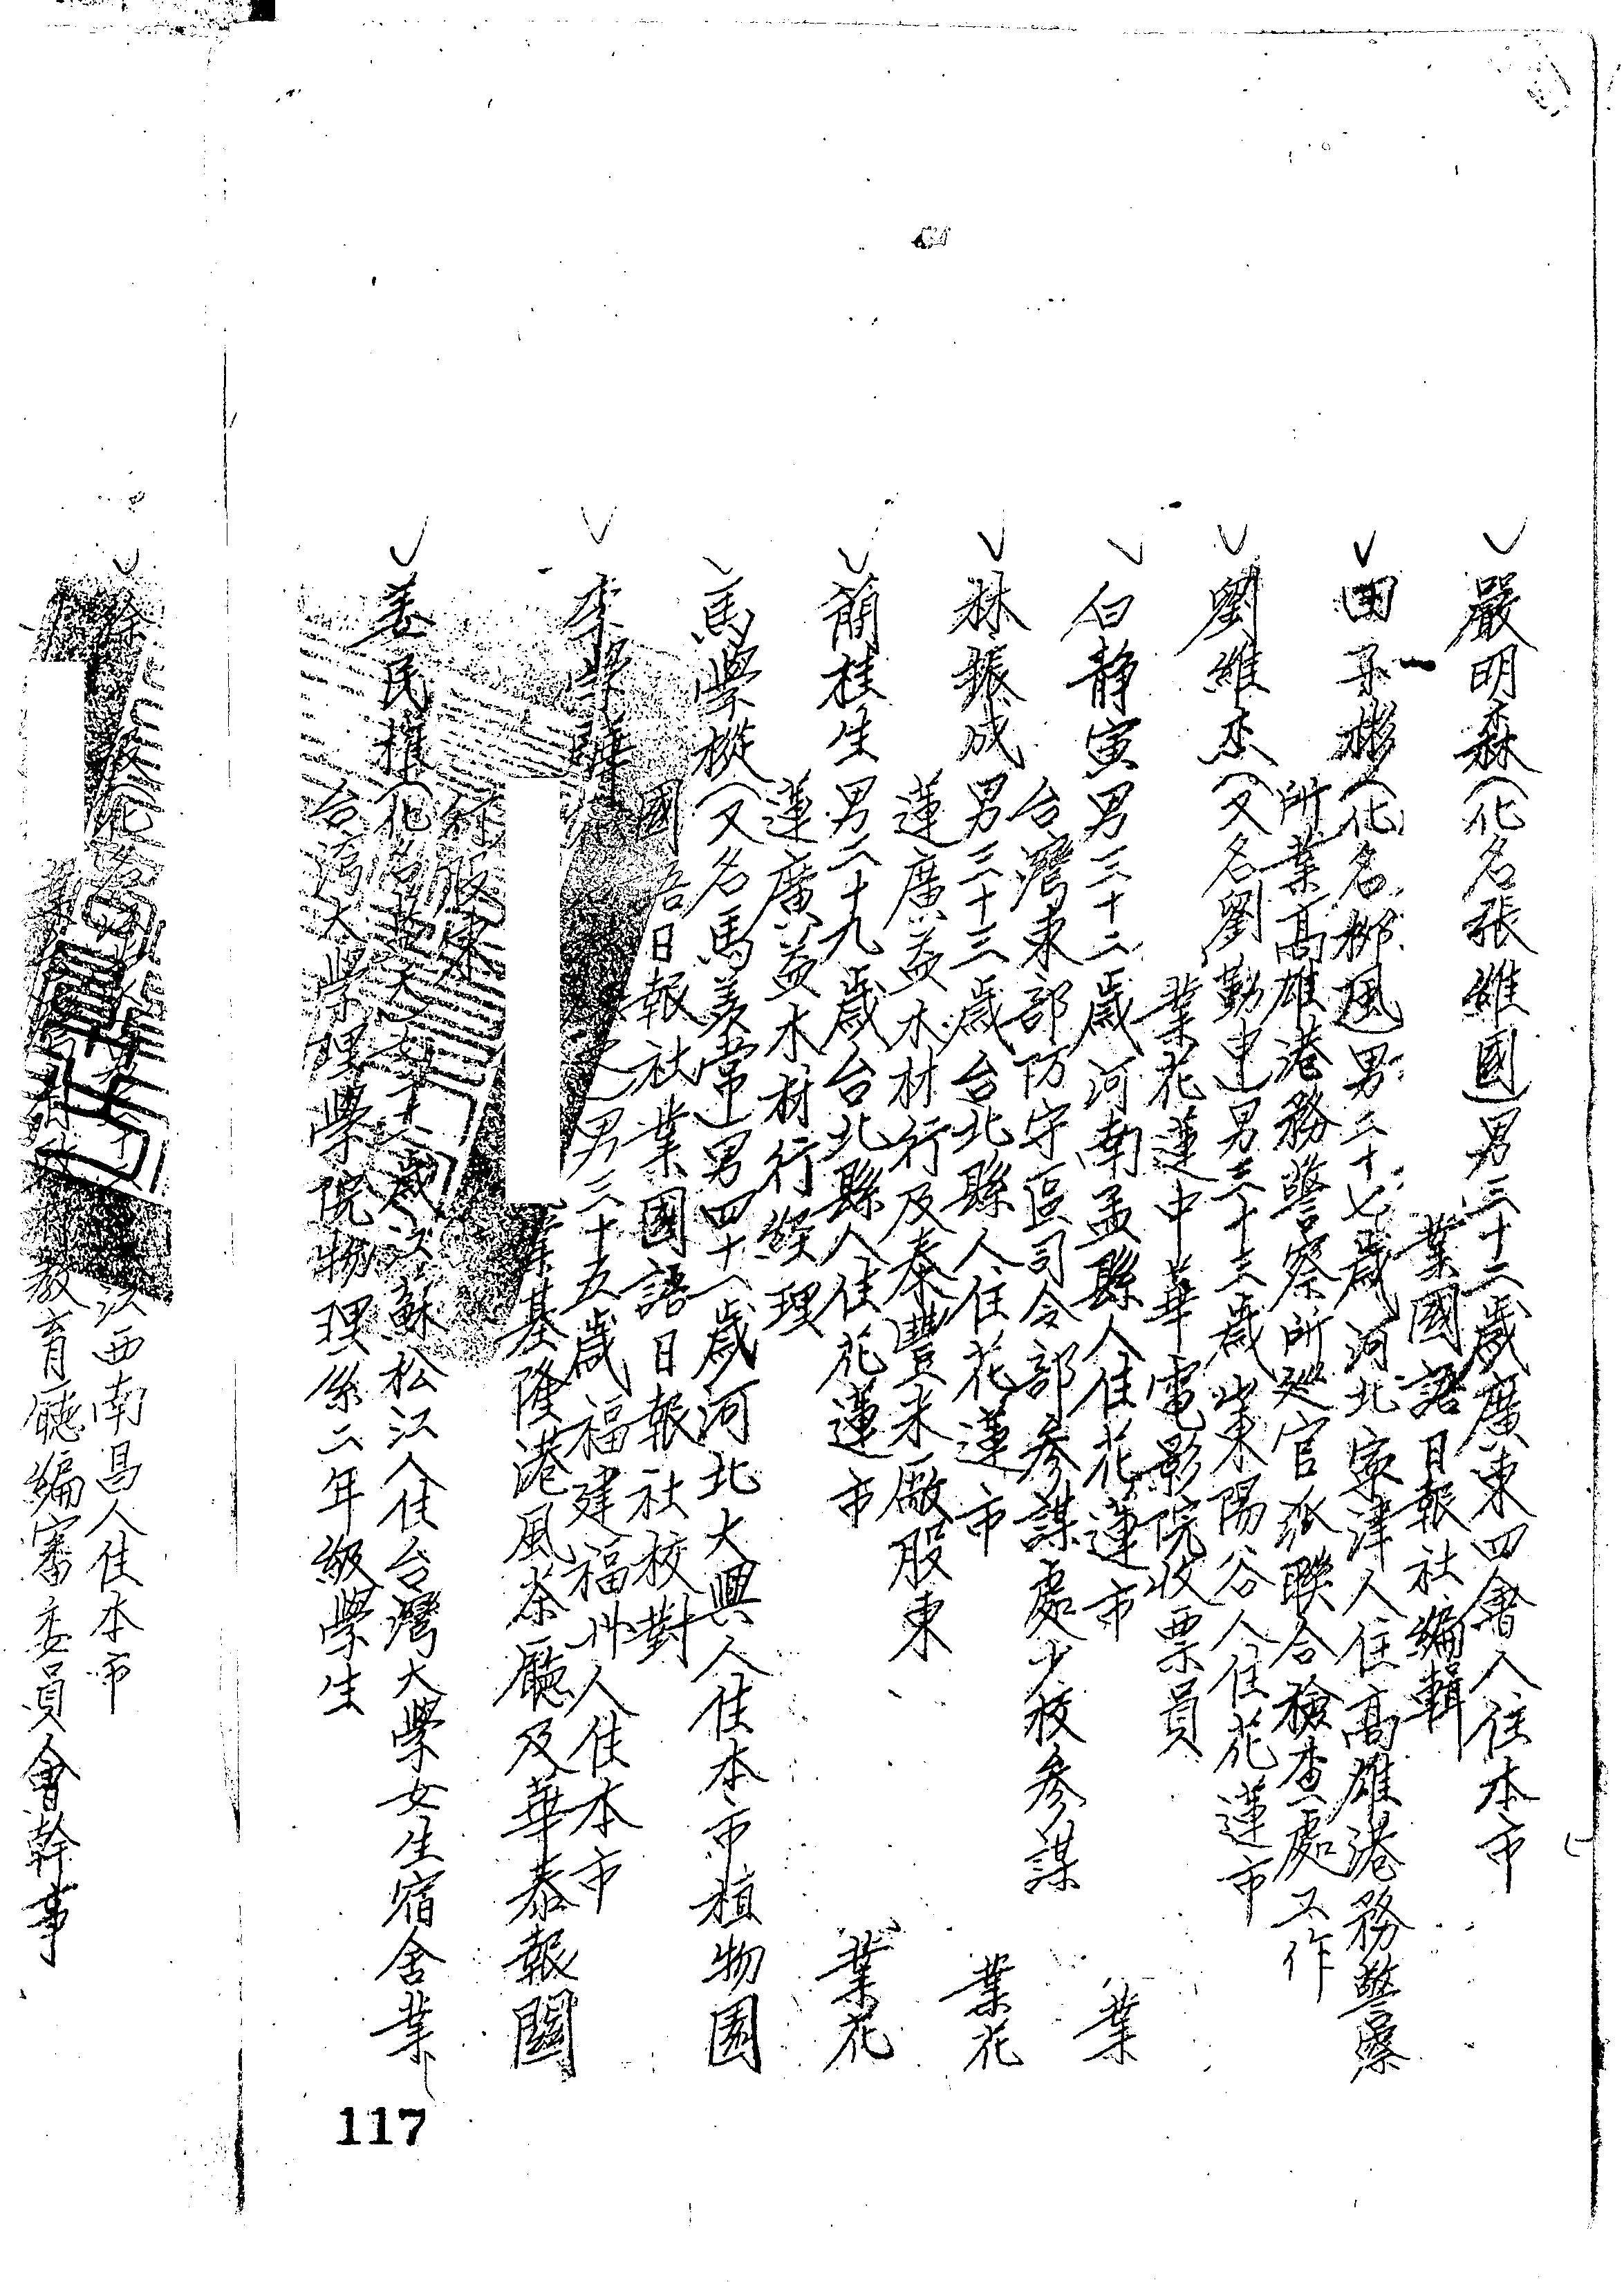 嚴明森(化名張維國)男三十二歲廣東四會人住本市
業國語日報社編輯
田子彬(化名柳風)男三十七歲河北寧津人住高雄港務警察
所業高雄港務警察所巡官派聯合檢查處工作
劉維杰(又名劉勤申)男三十三歲山東陽谷人住花蓮市
業花蓮中華電影院收票員
白靜寅男三十二歲河南孟縣人住花蓮市 業
台灣東部防守區司令部參謀處少校參謀
林振成男三十三歲台北縣人住花蓮市 業花
蓮廣益木材行及泰豐米廠股東
簡桂生男二十九歲台北縣人住花蓮市 業花
蓮廣益木材行經理
馬學樅(又名馬羨常)男四十一歲河北大興人住本市植物園
國語日報社業國語日報社校對
李 男三十五歲福建福州人住本市
業基隆港風茶廳及華泰報關
行股東
姜民權(化名 歲江蘇松江人住台灣大學女生宿舍業
台灣大學理學院物理系二年級學生
徐 江西南昌人住本市
教育廳編審委員會幹事
117